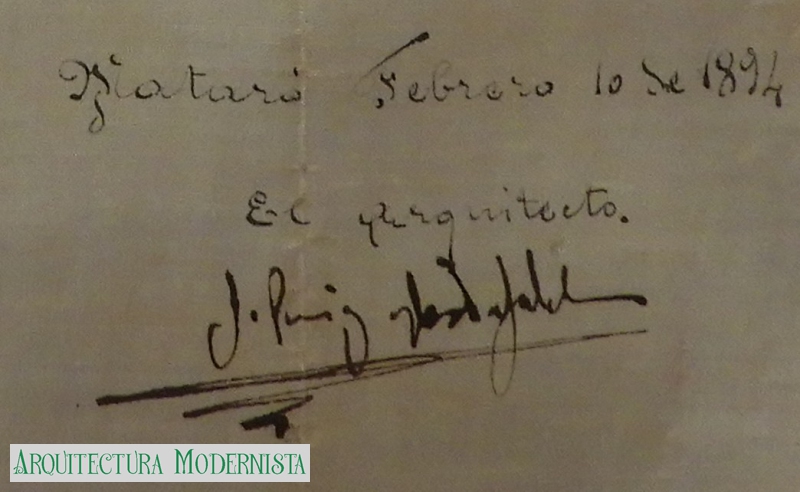 Mataró Febrero 10 de 1894
El Arquitecto.
J. Puig y Cadafalch
ARQUITECTURA MODERNISTA